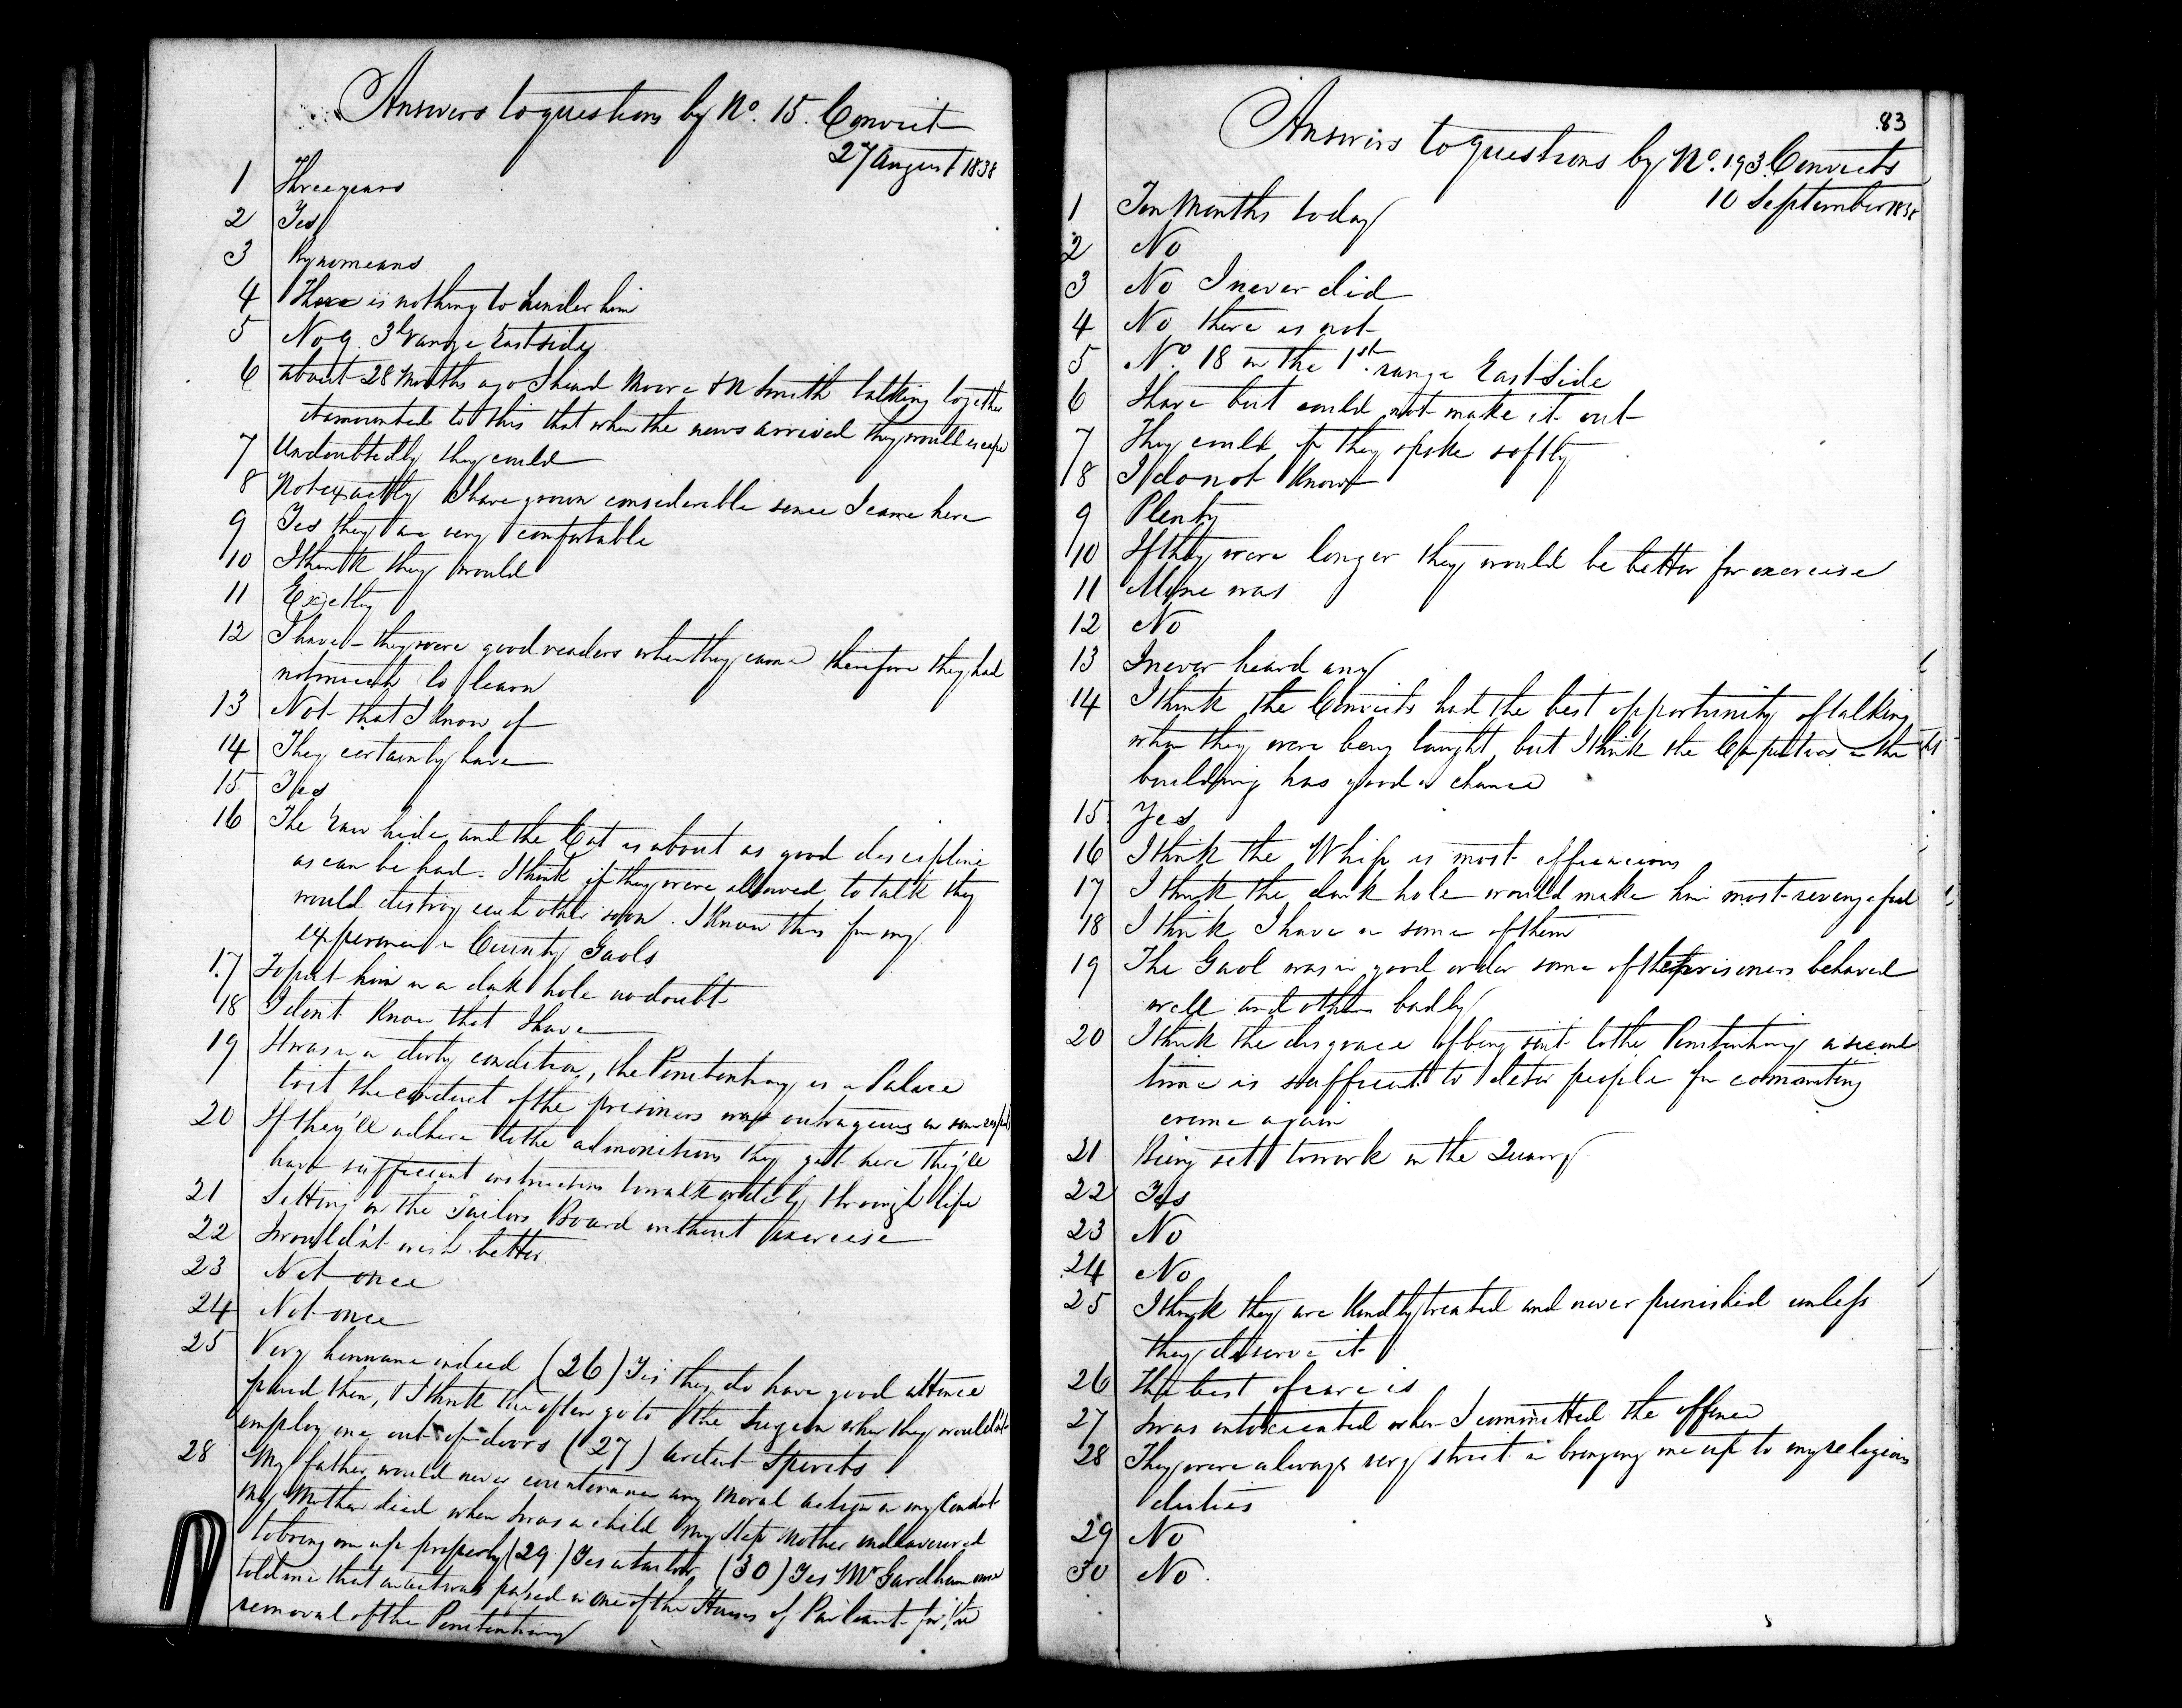 Answers to questions by No. 15. Convict
27 August 1838
1 Three years
2 Yes
3 By no means
4 There is nothing to hinder him
5 No 9. 3d range East side
6 about 28 Months ago I heard Moore & N Smith talking together
it amounted to this that when the news arrived they would escape
7 Undoubtedly they could
8 Not exactly I have grown considerable since I came here
9 Yes they are very comfortable
10 I think they would
11 Exactly
12 I have - they were good readers when they came therefore they had
not much to learn
13 Not that I know of
14 They certainly have
15 Yes
16 The raw hide and the Cat is about as good discipline
as can be had. I think if they were allowed to talk they
would destroy each other soon. I know this from my
experience in County Gaols
17 To put him in a dark hole no doubt
18 I don't know that I have
19 It was in a dirty condition, the Penitentiary is a Palace
to it the conduct of the prisoners was outrageous in some respects
20 If they'll adhere to the admonitions they get here they'll
have sufficient instruction to walk orderly through life
21 Sitting on the Tailors Board without exercise
22 I wouldn't wish better
23 Not once
24 Not once
25 Very humane indeed (26) Yes they do have good attence
paid them, & I think too often go to the Surgeon when they wouldn't
employ one out of doors (27) ardent Spirits
28 My father would never countenance any moral action in my conduct
my Mother died when I was a child my Step Mother endeavoured
to bring me up properly (29) Yes a tailor (30) Yes Mr Gardham once
told me that an act was passed in one of the Houses of Parliament for the
removal of the Penitentiary
83
Answers to questions by No. 193. Convicts
10 September 1838
1 Ten Months today
2 No
3 No I never did
4 No there is not
5 No. 18 on the 1st. range East Side
6 I have but could not make it out
7 They could if they spoke softly
8 I do not know
9 Plenty
10 If they were longer they would be better for exercise
11 Mine was
12 No
13 I never heard any
14 I think the Convicts had the best opportunity of talking
when they were being taught, but I think the Carpenters in the
building has good a chance
15 Yes
16 I think the Whip is most efficacious
17 I think the dark hole would make him most revengeful
18 I think I have in some of them
19 The Gaol was in good order some of the prisoners behaved
well and others badly
20 I think the disgrace of being sent to the Penitentiary a second
time is sufficient to deter people from commiting
crime again
21 Being sett to work in the Quarry
22 Yes
23 No
24 No
25 I think they are kindly treated and never punished unless
they deserve it
26 The best of care is
27 I was intoxicated when I committed the offence
28 They were always very strict in bringing me up to my religious
duties
29 No
30 No.